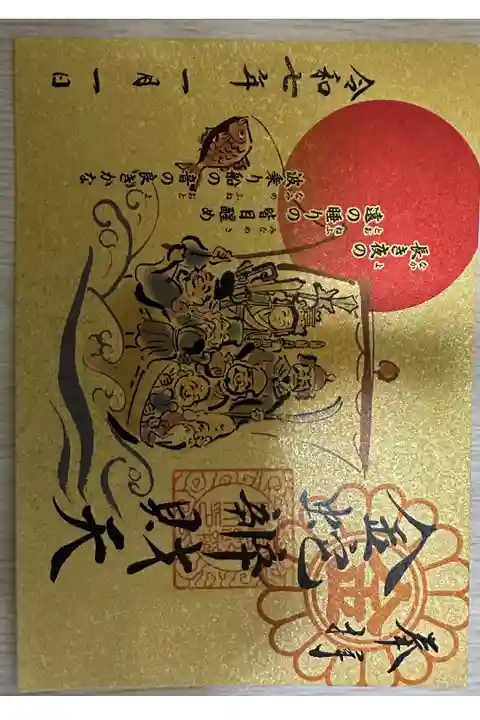 奉拝
辨財天
長き夜の
遠の睡りの
皆目醒め
波乗り船の
音の良きかな
令和七年 一月一日